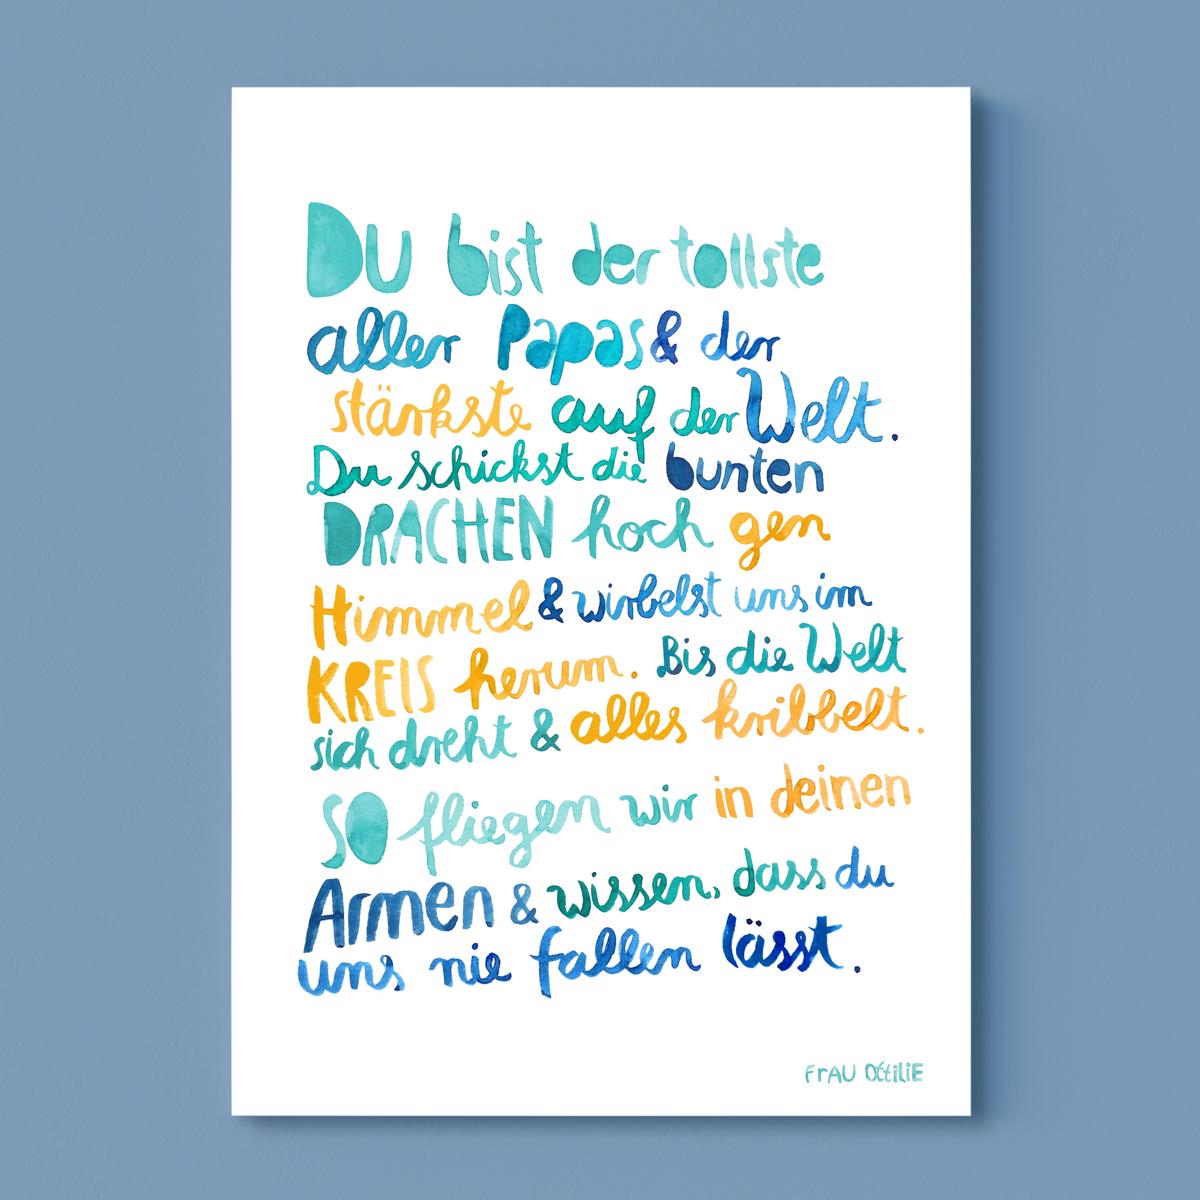 DU bist der tollste
aller Papas & der
stärkste auf der Welt.
Du schickst die bunten
DRACHEN hoch gen
Himmel & wirbelst uns im
KREIS herum. Bis die Welt
sich dreht & alles kribbelt.
SO fliegen wir in deinen
Armen & wissen, dass du
uns nie fallen lässt.
FrAU OttiliE